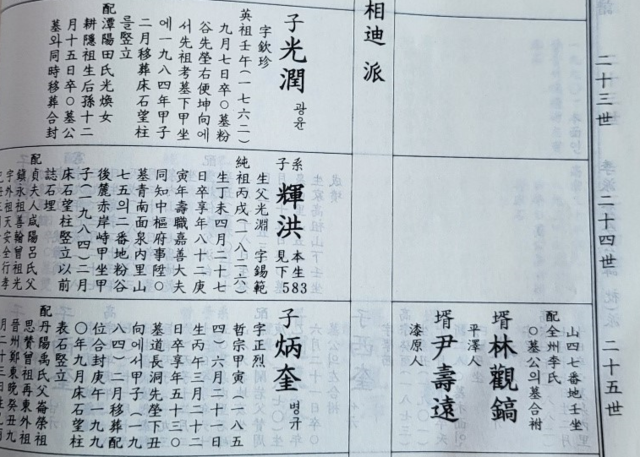 二十三世
相迪派
子光潤 광윤
字欽珍
英祖壬午(一七六二)
九月七日卒○墓粉
谷先塋右便坤向에
서先祖考墓下甲坐
에一九八四年甲子
二月移葬床石望柱
를竪立
配潭陽田氏光煥女
耕隱祖生后孫十二
月十五日卒○墓公
墓와同時移葬合封
二十四世
系子輝洪 本生見下583
生父光淵 字錫範
純祖丙戌(一八二六)
生丁未四月二十七
日卒享年八十二庚
寅年壽職嘉善大夫
同知中樞府事陞○
墓靑南面泉內里山
七五의二番地粉谷
後麓赤岸峙甲坐甲
子(一九八四)二月
床石望柱竪立以前
誌石埋
配貞夫人咸陽呂氏父
鎭永祖善翰曾祖光
字外祖天安全行孝
二十五世
山四七番地壬坐
配全州李氏
○墓公의墓合祔
壻林觀鎬
平澤人
壻尹壽遠
漆原人
子炳奎 병규
字正烈
哲宗甲寅(一八五
四)六月二十一日
生丙午三月二十二
日卒享年五十三○
墓道長洞先塋下丑
向에서甲子(一九
八四)二月移葬配
位合封庚午一九九
○年九月床石望柱
表石竪立
配丹陽禹氏父崙榮祖
思贊曾祖再東外祖
晉州鄭東晩癸丑九
月二十三日生